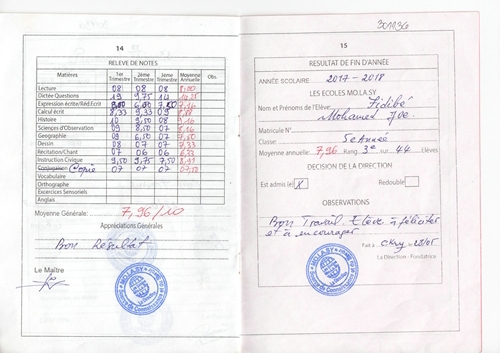 14
RELEVE DE NOTES
Matières 1er Trimestre 2ème Trimestre 3ème Trimestre Moyenne Annuelle Obs.
Lecture 08 08 08 8,00
Dictée Questions 19 9,75 14 14,25
Expression écrite/Réd.Ecrit 6,00 7,50 7,16
Calcul écrit 8,33 9,33 09 8,88
Histoire 10 9,50 08 9,16
Sciences d'Observations 09 8,50 07 8,16
Géographie 09 6,50 07 7,50
Dessin 08 07 07 7,33
Récitation/Chant 07 06 06 6,33
Instruction Civique 9,50 9,75 7,50 8,91
Copie 07 07 07 07,00
Vocabulaire
Orthographe
Excercices Sensoriels
Anglais
Moyenne Générale: 7,96/10
Appréciations Générales
Bon Résultat
Le Maître
301136
15
RESULTAT DE FIN D'ANNÉE
ANNÉE SCOLAIRE 2017 - 2018
LES ECOLES MO.LA.SY
Nom et Prénoms de l'Elève: Fidibé
Mohamed
Matricule N°
Classe: 5e Année
Moyenne annuelle: 7,96 Rang 3e sur 44 Elèves
DECISION DE LA DIRECTION
Est admis (e) X Redouble
OBSERVATIONS
Bon Travail. Elève à féliciter
et à encourager
Fait à Ckry le 28/05
La Direction - Fondatrice